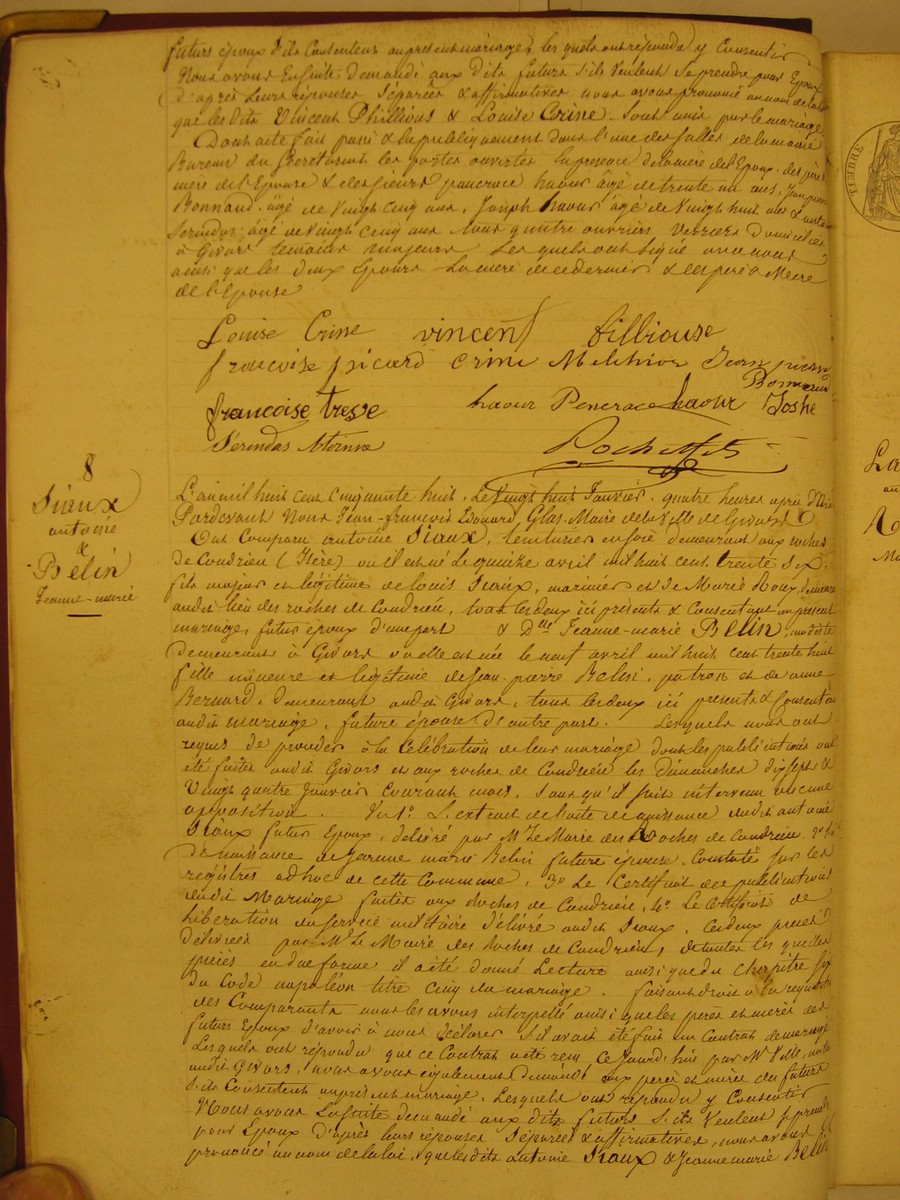 futurs époux s'ils Consentent au présent mariage, les quels ont répondu y Consentir
Nous avons Ensuite demandé aux dits futurs s'ils Veulent se prendre pour Epoux
d'après leurs réponses Séparées & affirmatives nous avons prononcé au nom de la loi
que les dits Vincent Phillious & Louise Crine. Sont unis par le mariage.
Dont acte fait passé & lu publiquement dans l'une des salles de la mairie
Bureau du Secrétariat les portes ouvertes En présence de la mère de l'Epoux. des père
mère de l'Epouse & des sieurs pancrace haour âgé de trente un ans, Jean pierre
Bonnaud âgé de Vingt Cinq ans, Joseph haour âgé de Vingt huit ans &
Serindas âgé de Vingt Cinq ans tous quatre ouvriers Verriers domiciliés
à Givors temoins majeurs Les quels ont Signé avec nous
ainsi que les deux Epoux La mère de ce dernier & les père & Mère
de l'Epouse
Louise Crine vincent filliouse
françoise picard Crine Melchior Jean pierre
Bonnaud
francoise tresse haour Pencrace haour Joshe
Serindas Etienne
8
Siaux
antoine
&
Bélin
Jeanne-marie
L'an mil huit cent Cinquante huit, Le Vingt huit Janvier, quatre heures après Midi
Pardevant Nous Jean-françois Edouard, Glas, Maire de la Ville de Givors
Ont Comparu antoine Siaux, teinturier en soie demeurant aux roches
de Condrieu (Isère) où il est né le quinze avril mil huit cent trente six
fils majeur et légitime de Louis Siaux, marinier et de Marie Roux, demeurant
audit lieu des roches de Condrieu, tous les deux ici présents & Consentant au présent
mariage, futur époux d'une part & Dlle Jeanne-marie Bélin, modiste
demeurant à Givors où elle est née le neuf avril mil huit cent trente huit
fille mineure et légitime de Jean-pierre Belin, patron et de anne
Bernard, demeurant audit Givors, tous les deux ici présents & Consentant
audit mariage, future épouse d'autre part. Lesquels nous ont
requis de procéder à la Célébration de leur mariage dont les publications ont
été faites audit Givors et aux roches de Condrieu les Dimanches dix sept &
Vingt quatre Janvier Courant mois, Sans qu'il soit intervenu aucune
opposition. Vu 1° L'extrait de l'acte de naissance dudit antoine
Siaux futur Epoux, délivré par Mr Le Maire des Roches de Condrieu 2°
de naissance de Jeanne marie Belin future épouse, Constaté sur les
registres ad hoc de cette Commune, 3° Le Certificat des publications
dudit Mariage faites aux Roches de Condrieu, 4° Le Certificat de
Libération du service militaire délivré audit Siaux, Ces deux pièces
délivrées par Mr Le Maire des Roches de Condrieu, de toutes les quelles
pièces en due forme il a été donné Lecture ainsi que du Chapitre six
du Code napoléon titre Cinq du mariage. faisant droit à la requête
des Comparants nous les avons interpellé ainsi que les pères et mères des
futurs Epoux d'avoir à nous déclarer s'il avait été fait un Contrat de mariage
Lesquels ont répondu que ce Contrat a été reçu Ce Jourd'hui par Mr Ville,
audit Givors, nous avons également demandé aux pères et mères des futurs
s'ils Consentent au présent mariage, Lesquels ont répondu y Consentir
Nous avons Ensuite demandé aux dits futurs S'ils Veulent se prendre
pour Epoux d'après leurs réponses Séparées & affirmatives, nous avons
prononcé au nom de la loi, que les dits Antoine Siaux & Jeanne marie Bélin
TIMBRE